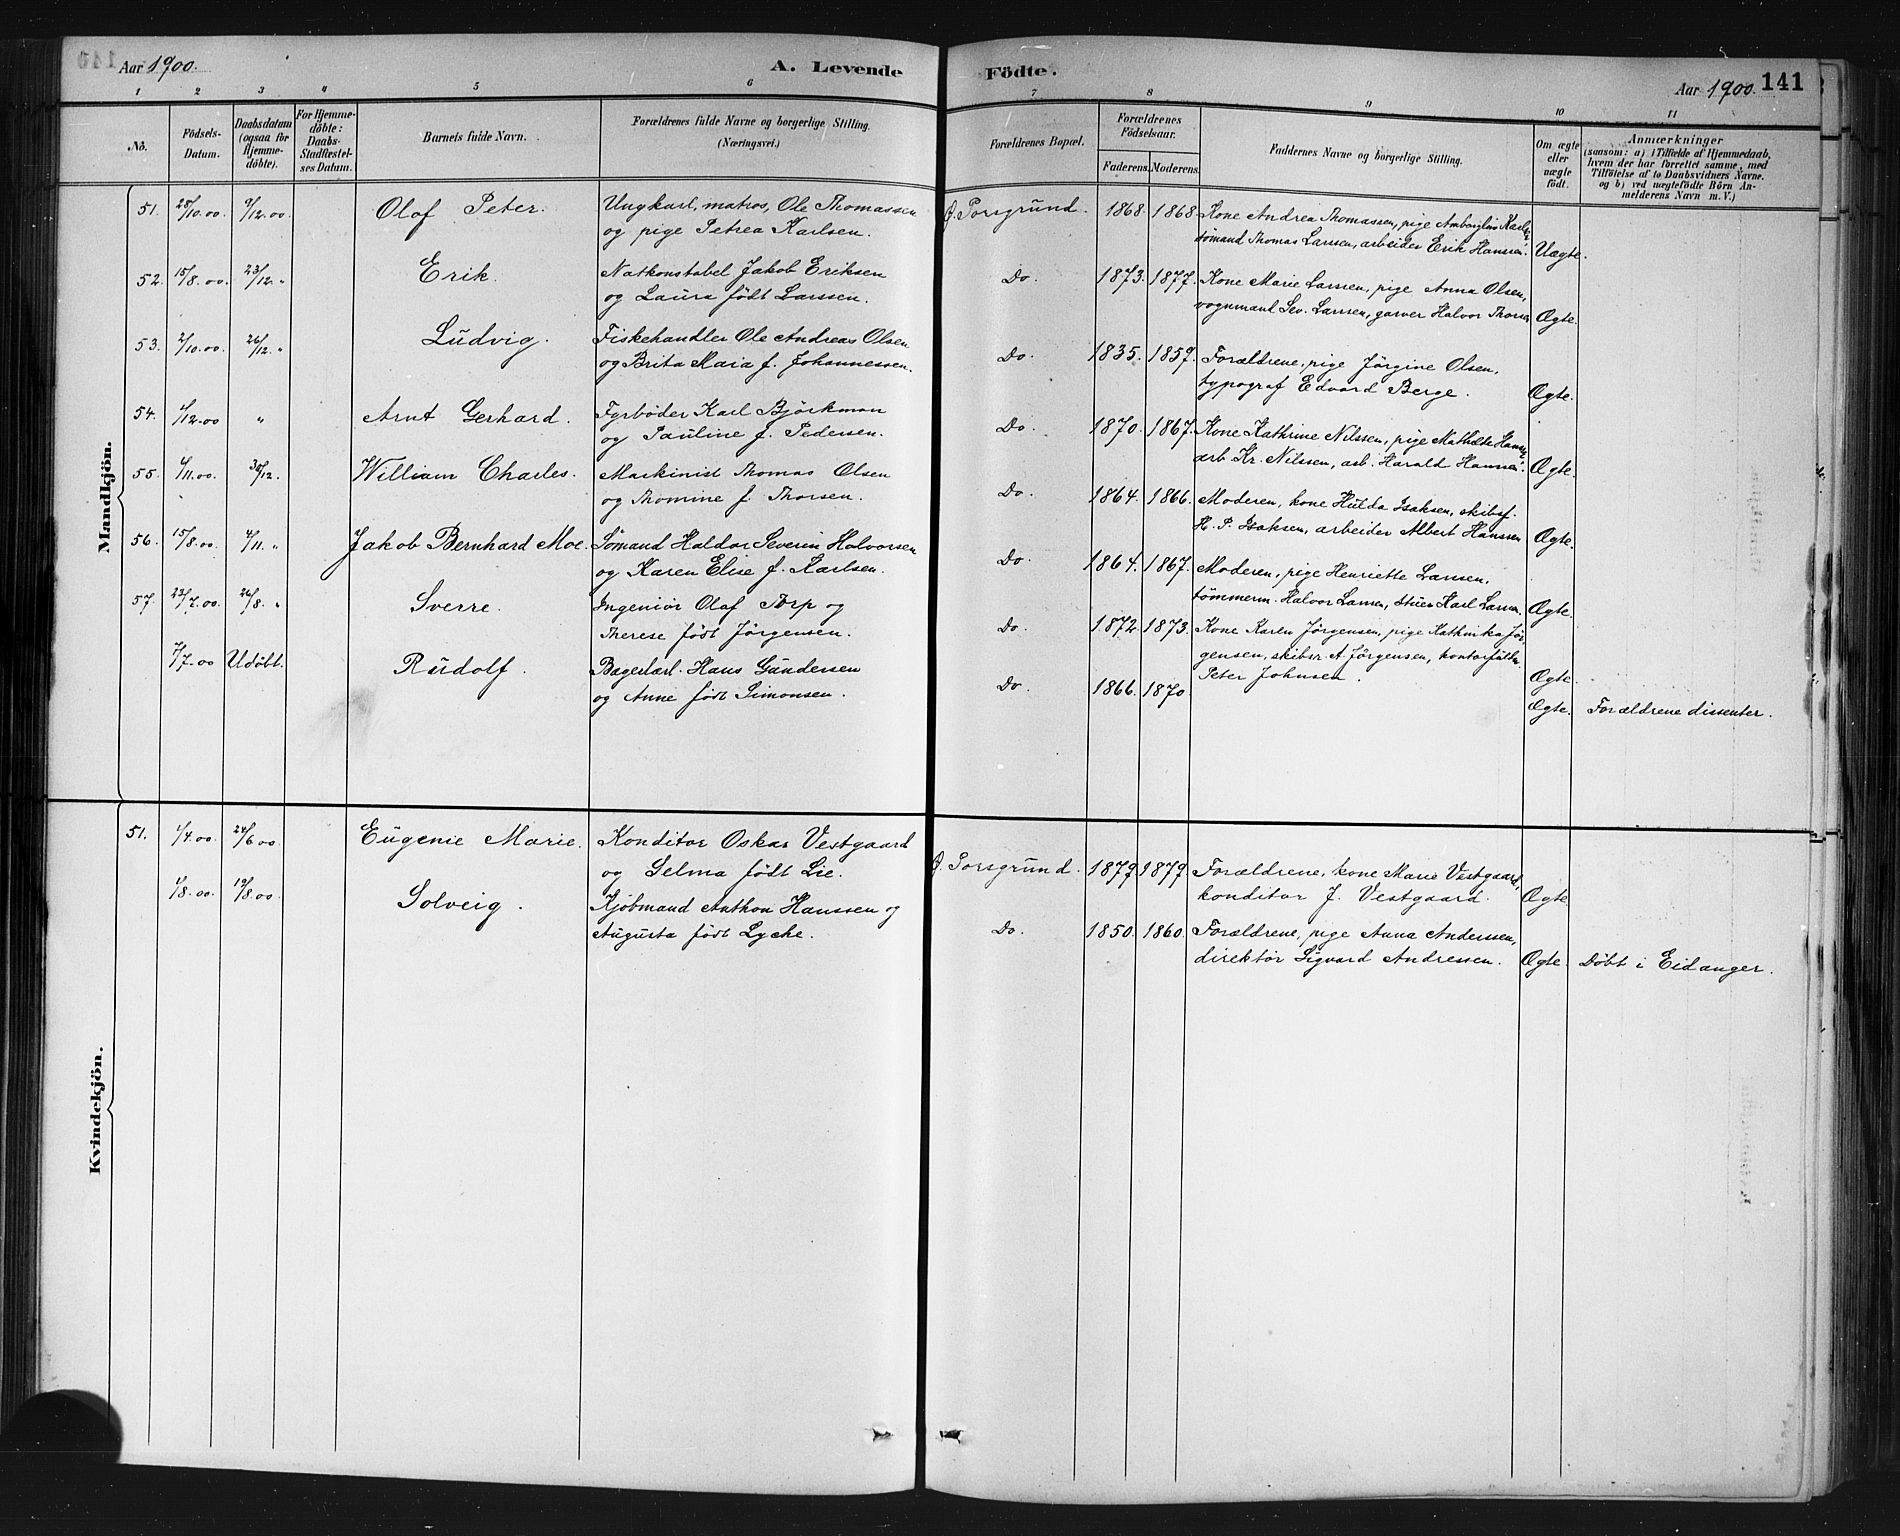 Aar 1900. A. Levende Födte. Aar 1900. 141
1 2 3 4 5 6 7 8 9 10 11
No. Födsels-Datum. Daabsdatum (ogsaa for Hjemmedöbte). For Hjemmedöbte: Daabs-Stadfæstelses Datum. Barnets fulde Navn. Forældrenes fulde Navne og borgerlige Stilling. (Næringsvei.) Forældrenes Bopæl. Forældrenes Födselsaar. Faderens. Moderens. Faddernes Navne og borgerlige Stilling. Om ægte eller uægte födt. Anmærkninger
(saasom: a) i Tilfælde af Hjemmedaab, hvem der har forrettet samme, med Tilföielse af to Daabsvidners Navne, og b) ved uægtefödte Börn Anmelderens Navn m. V.)
Mandkjön.
51. 28/10.00. 9/12.00 Olaf Peter. Ungkarl, matros, Ole Thomassen
og pige Petrea Karlsen. Ø. Porsgrund. 1868. 1868. Kone Andrea Thomassen, pige
sömand Thomas Larssen, arbeider Erik Hanssen. Uægte.
52. 15/8.00. 23/12. " Erik. Natkonstabel Jakob Eriksen
og Laura födt Larssen. Do. 1873. 1877. Kone Marie Larssen, pige Anna Olsen,
vognmand Sev. Larssen, garver Halvor Thorsen Ægte.
53. 2/10.00. 26/12. " Ludvig. Fiskehandler Ole Andreas Olsen
og Brita Maria f. Johannessen. Do. 1835. 1857. Forældrene, pige Jörgine Olsen,
typograf Edvard Berge. Ægte.
54. 1/12.00 " Arnt Gerhard. Fyrböder Karl Björkman
og Pauline f. Pedersen. Do. 1870. 1867. Kone Kathrine Nilssen, pige Mathilde Hansen
arb. Kr. Nilssen, arb. Harald Hansen. Ægte.
55. 1/11.00. 30/12. William Charles. Maskinist Thomas Olsen
og Thomine f. Thorsen. Do. 1864. 1866. Moderen, kone Hulda Isaksen, skibsf.
H. P. Isaksen, arbeider Albert Hanssen Ægte.
56. 15/8.00. 4/11. " Jakob Bernhard Moe. Sömand Haldor Severin Halvorsen
og Karen Elise f. Karlsen. Do. 1864. 1867. Moderen, pige Henriette Larssen,
tömmerm. Halvor Larsen, stuer Karl Larsen. Ægte.
57. 23/7.00. 26/8. " Sverre. Ingeniör Olaf Torp og
Therese födt Jörgensen. Do. 1872. 1873. Kone Karen Jörgensen, pige Kathinka Jör-
gensen, skibsr. A. Jörgensen, kontorfuldm.
Peter Johnsen. Ægte.
7/7.00 Udöbt. Rudolf. Bagerlærl. Hans Gundersen
og Anne födt Simonsen. Do. 1866. 1870 Ægte. Forældrene dissenter.
Kvindekjön.
51. 1/4.00. 24/6 00 Eugenie Marie. Konditor Oskar Vestgaard
og Selma födt Lie. Ø. Porsgrund. 1877 1879. Forældrene, kone Marie Vestgaard,
konditor J. Vestgaard. Ægte
1/8.00. 19/8.00. Solveig. Kjöbmand Anthon Hanssen og
Augusta födt Lyche. Do. 1850. 1860. Forældrene, pige Anna Anderssen,
direktör Sigvard Andressen. Ægte. Döbt i Eidanger.